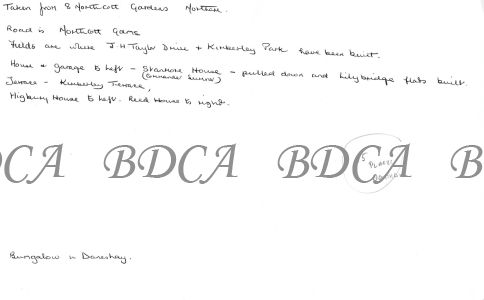 Taken from 8 Northcott Gardens Northam.
Road is Northcott Gdns
Fields are where J.H Taylor Drive + Kimberley Park have been built.
House + garage to left - Stanmore House - pulled down and Lilybridge flats built.
(Commander)
Terrace - Kimberley Terrace,
Highbury House to left. Reed House to right.
BDCA BDCA BDCA B
Bungalow is Daneshay.